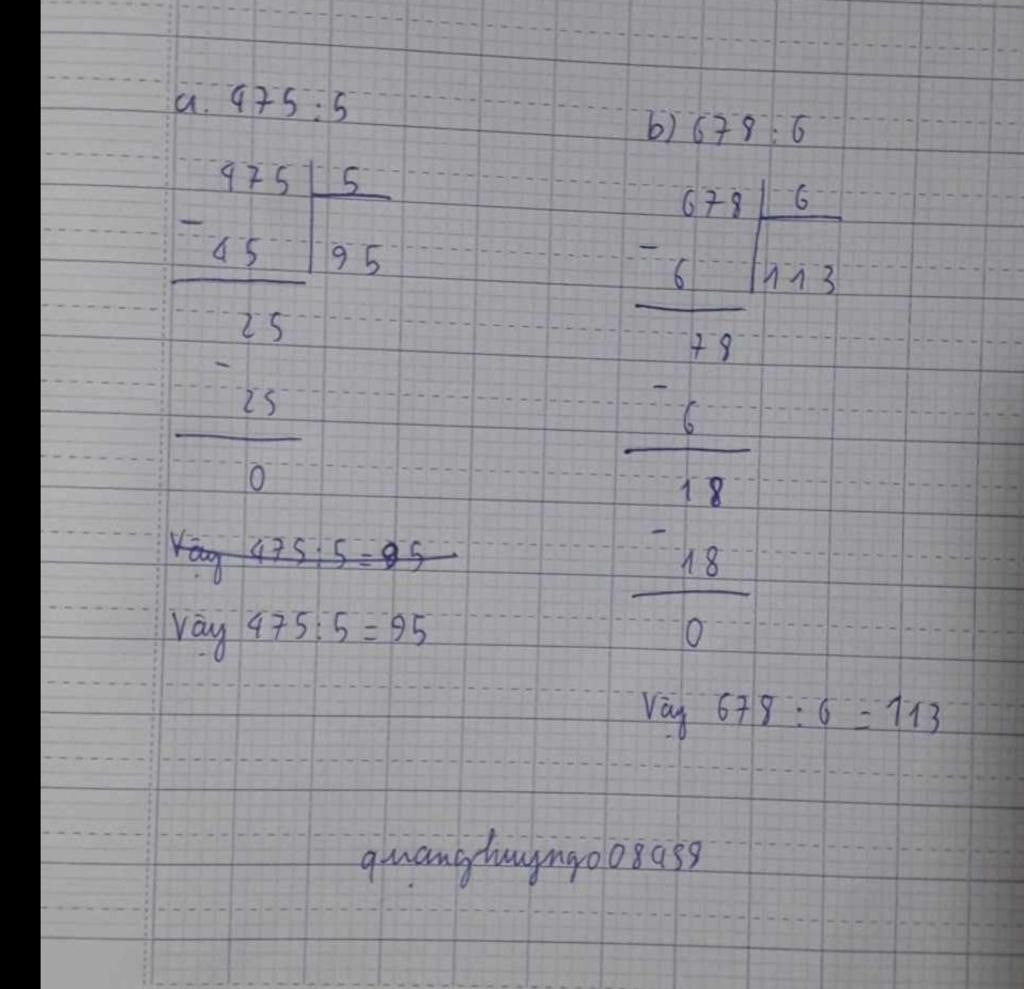 a. 475 : 5
475 5
- 45 95
25
- 25
0
Vậy 475 : 5 = 95
Vậy 475 : 5 = 95
b) 678 : 6
678 6
- 6 113
78
- 6
18
- 18
0
Vậy 678 : 6 = 113